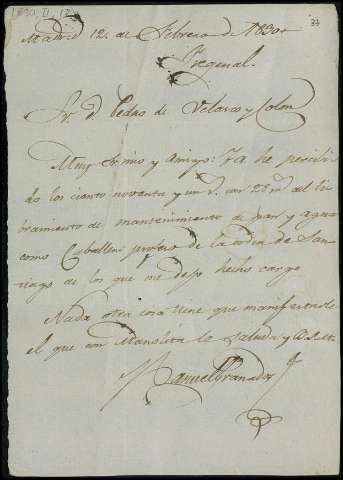 1830, II, 12
37
Madrid 12 de Febrero de 1830
Fregenal.
Sr. D. Pedro de Velasco y Colon
Muy Sr. mio y Amigo: Ya he percibi
do los ciento noventa y un r. con 28 m. del li
bramiento de mantenimiento de pan y agua
como Caballero profeso de la orden de San
tiago de los que me dejo hecho cargo
Nada otra cosa tiene que manifestarle
el que con Manolita le saluda y
Manuel Granados